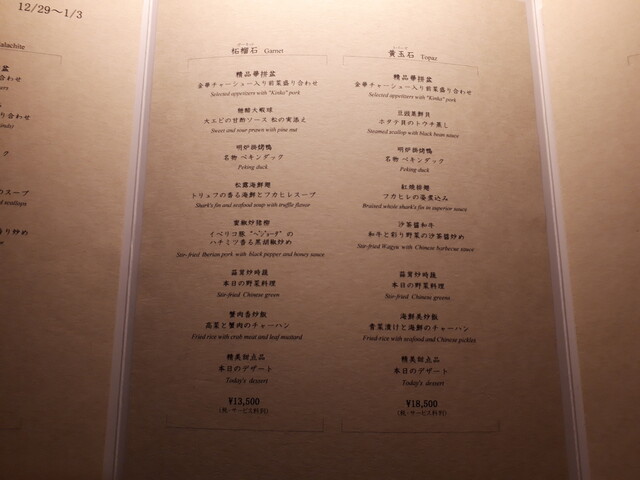 12/29～1/3
alachite
ガーネット
柘榴石 Garnet
精品華拼盆
金華チャーシュー入り前菜盛り合わせ
Selected appetizers with "Kinka" pork
糖醋大蝦球
大エビの甘酢ソース 松の実添え
Sweet and sour prawn with pine nut
明炉掛烤鴨
名物 ペキンダック
Peking duck
松露海鮮翅
トリュフの香る海鮮とフカヒレスープ
Shark's fin and seafood soup with truffle flavor
蜜椒炒猪柳
イベリコ豚 "ベジョータ" の
ハチミツ香る黒胡椒炒め
Stir-fried Iberian pork with black pepper and honey sauce
蒜茸炒時蔬
本日の野菜料理
Stir-fried Chinese green
蟹肉香炒飯
高菜と蟹肉のチャーハン
Fried rice with crab meat and leaf mustard
精美甜点品
本日のデザート
Today's dessert
¥13,500
(税・サービス料別)
トパーズ
黄玉石 Topaz
精品華拼盆
金華チャーシュー入り前菜盛り合わせ
Selected appetizers with "Kinka" pork
豆豉蒸鮮貝
ホタテ貝のトウチ蒸し
Steamed scallop with black bean sauce
明炉掛烤鴨
名物 ペキンダック
Peking duck
紅焼排翅
フカヒレの姿煮込み
Braised whole shark's fin in superior sauce
沙茶醤和牛
和牛と彩り野菜の沙茶醤炒め
Stir-fried Wagyu with Chinese barbecue sauce
蒜茸炒時蔬
本日の野菜料理
Stir-fried Chinese greens
海鮮美炒飯
青菜漬けと海鮮のチャーハン
Fried rice with seafood and Chinese pickles
精美甜点品
本日のデザート
Today's dessert
¥18,500
(税・サービス料別)